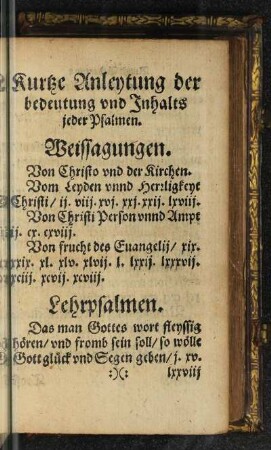 Kurtze Anleytung der
bedeutung vnd Jnhalts
jeder Psalmen.
Weissagungen.
Von Christo vnd der Kirchen.
Vom Leyden vnnd Herrligkeyt
Christi/ ij. viij. xvj. xxj. xxij. lxviij.
Von Christi Person vnnd Ampt
ij. cx. cxviij.
Von frucht des Euangelij/ xix.
xxix. xl. xlv. xlvij. l. lxxij. lxxxvij.
xciij. xcvij. xcviij.
Lehrpsalmen.
Das man Gottes wort fleyssig
hören/ vnd fromb sein soll/ so wölle
Gott glück vnd Segen geben/ j. xv.
:)(:
lxxviij